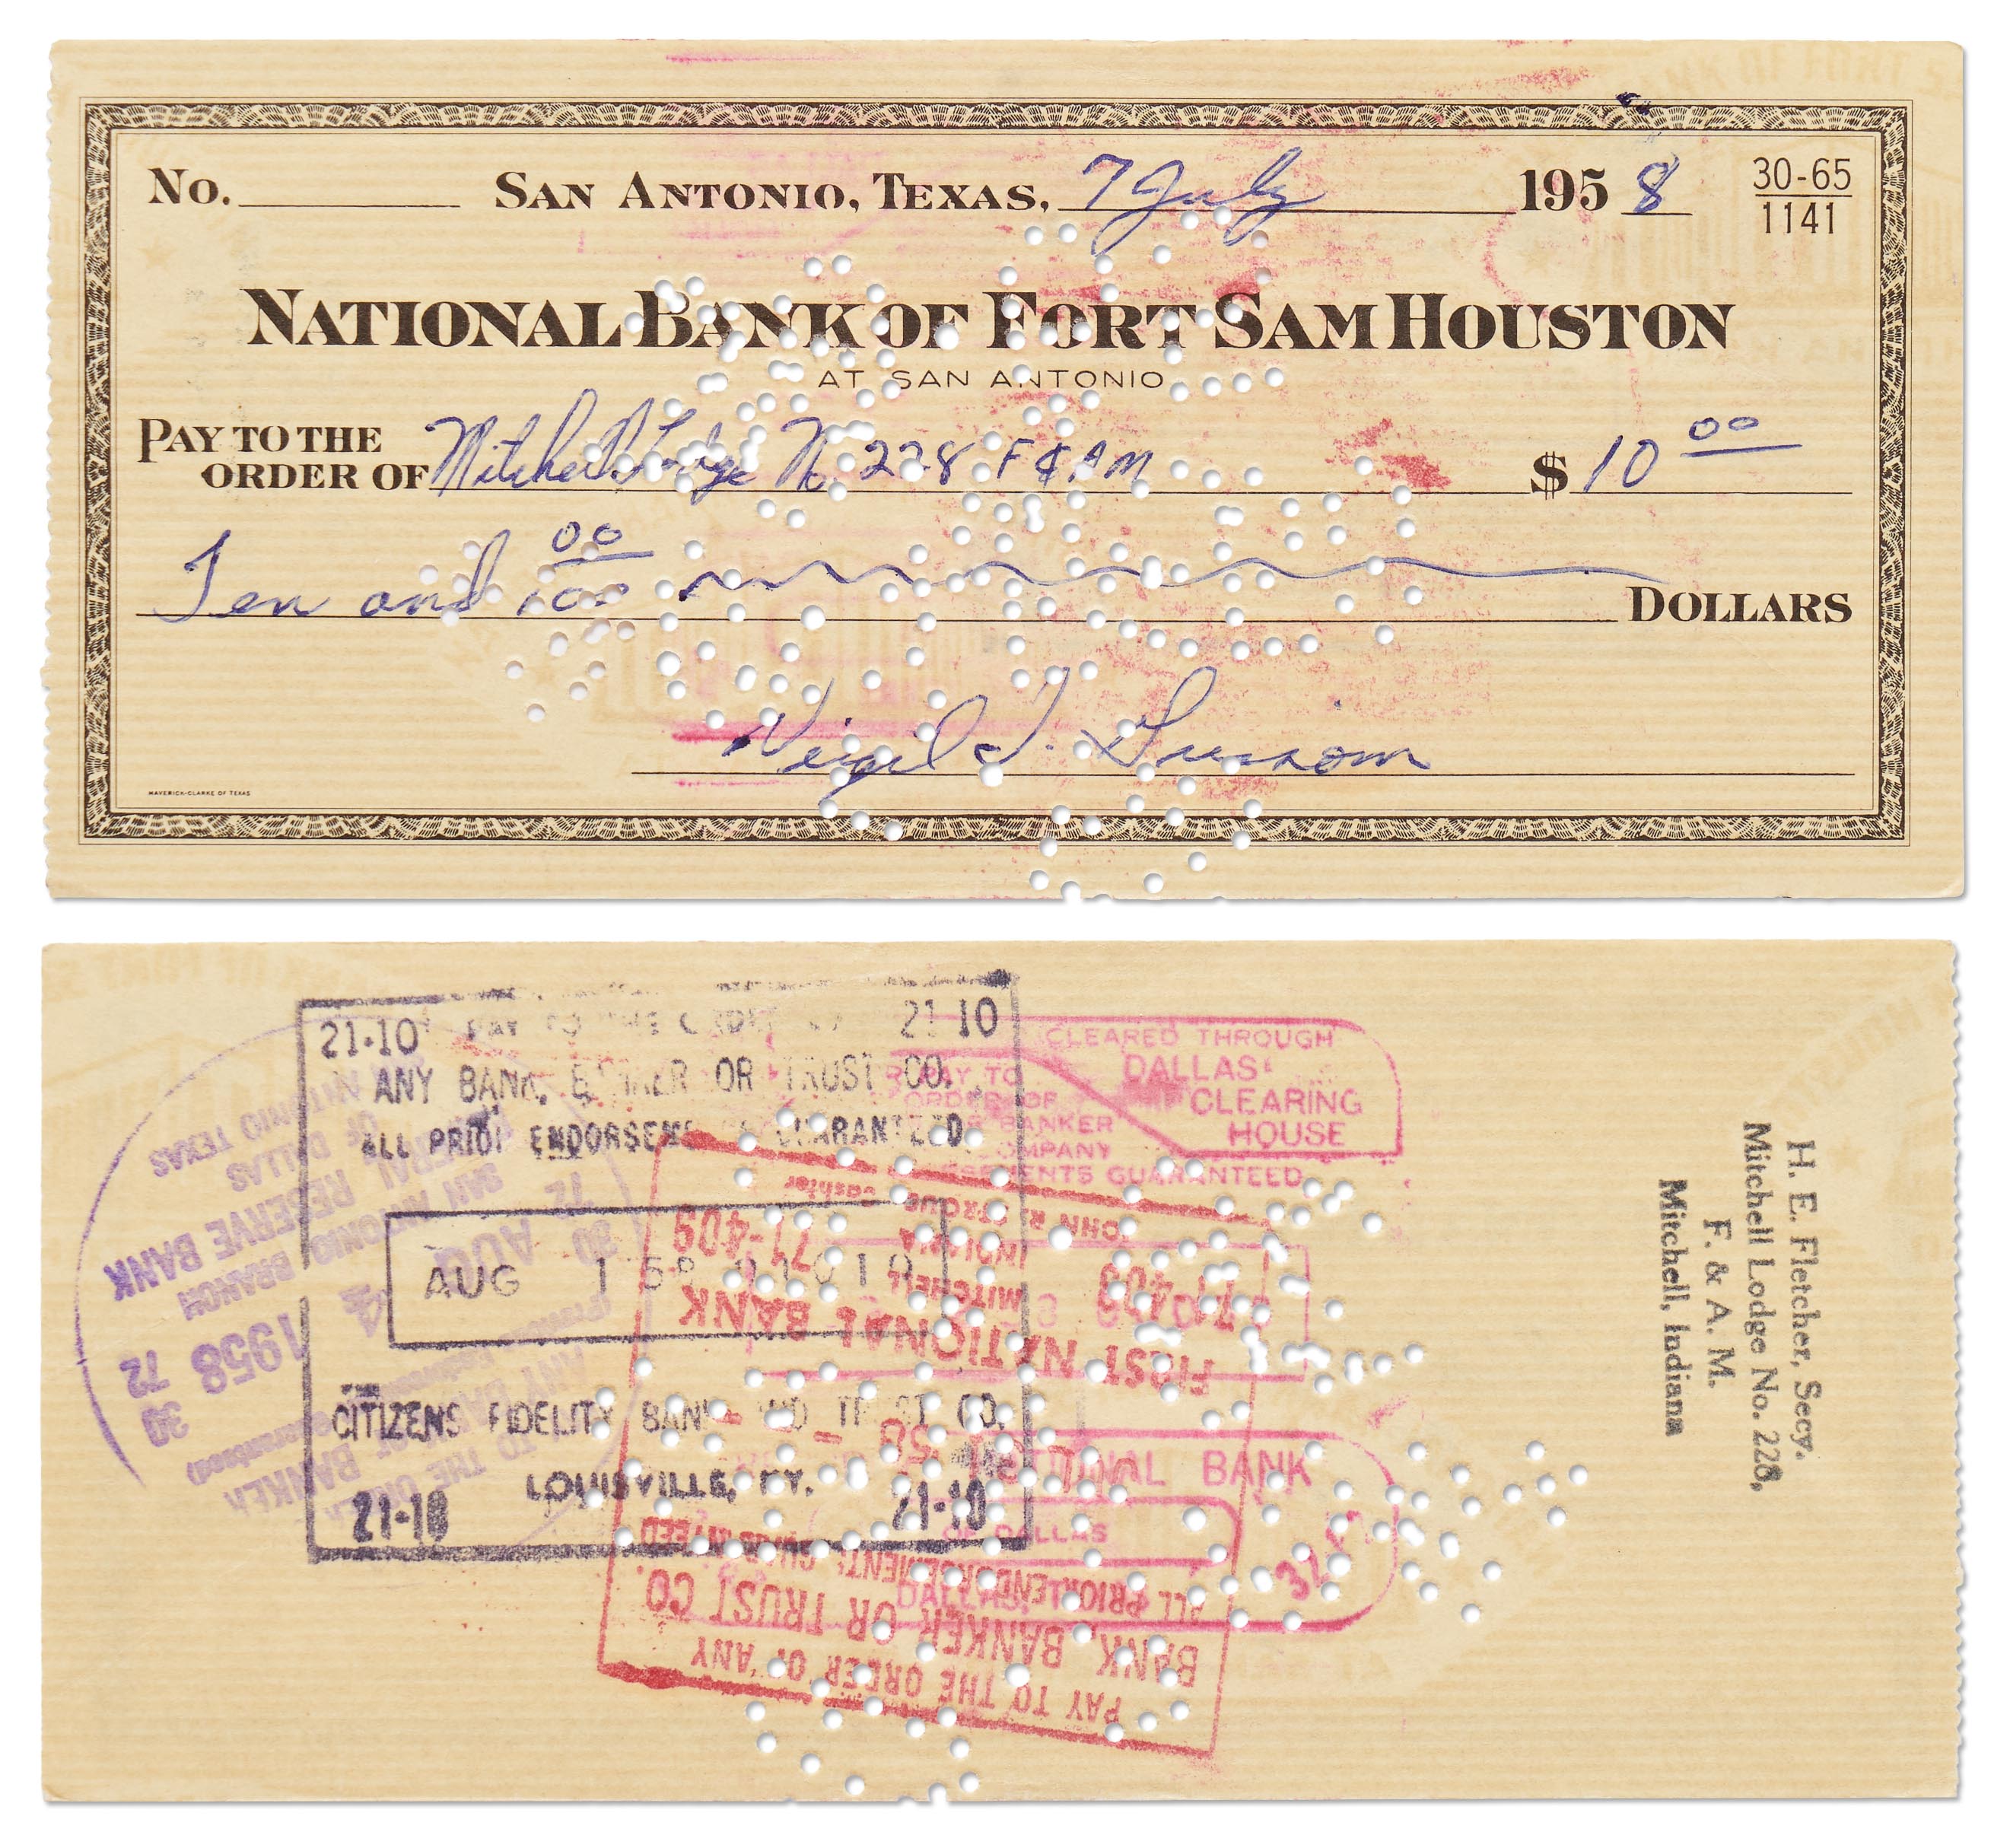 No. SAN ANTONIO, TEXAS, 7 July 1958 30-65
1141
NATIONAL BANK OF FORT SAM HOUSTON
AT SAN ANTONIO
PAY TO THE
ORDER OF Mitchell Lodge No. 228 F & AM $10 00
Ten and 00/100 DOLLARS
Virgil I. Grissom
MAVERICK-CLARKE OF TEXAS
21-10 PAY TO THE 21-10
ANY BANK, BANKER OR TRUST CO.
ALL PRIOR ENDORSEMENTS GUARANTEED
AUG 1 58
CITIZENS FIDELITY BANK AND TRUST CO.
LOUISVILLE, KY.
21-10 21-10
CLEARED THROUGH
DALLAS
CLEARING
HOUSE
PAY TO
ORDER OF
BANKER
COMPANY
GUARANTEED
NATIONAL BANK
OF DALLAS
DALLAS
PAY TO THE ORDER OF ANY
BANK, BANKER OR TRUST CO.
ALL PRIOR ENDORSEMENTS GUARANTEED
58
FIRST NATIONAL BANK
71-409 MITCHELL 71-409
INDIANA
JOHN R. Cashier
30 72
1958
AUG 4
30 72
FEDERAL RESERVE BANK
OF DALLAS
SAN ANTONIO BRANCH
SAN ANTONIO TEXAS
H. E. Fletcher, Secy.
Mitchell Lodge No. 228,
F. & A. M.
Mitchell, Indiana